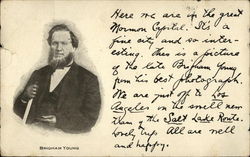 Here we are in the great
Mormon Capitol. It's a
fine city and so inter-
esting. This is a picture
of the late Brigham Young
from his best photograph.
We are just off to Los
Angeles on the swell new
train, the Salt Lake Route.
Lovely trip. All are well
and happy.
BRIGHAM YOUNG